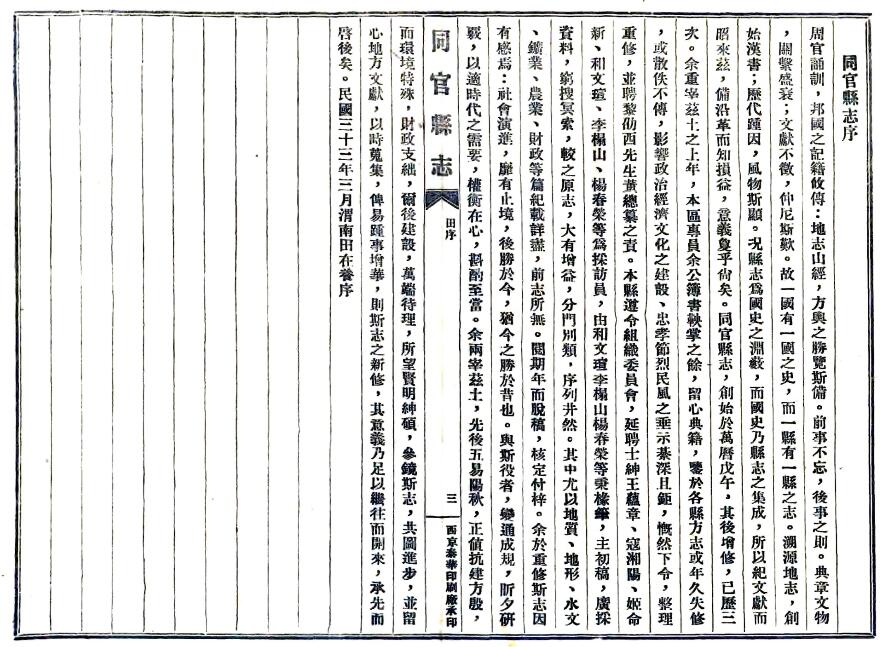 同官縣志序
周官誦訓，邦國之記籍攸傳：地志山經，方輿之勝覽斯備。前事不忘，後事之則。典章文物
，關繫盛衰；文獻不徵，仲尼斯歎。故一國有一國之史，而一縣有一縣之志。溯源地志，創
始漢書；歷代踵因，風物斯顯。况縣志爲國史之淵藪，而國史乃縣志之集成，所以紀文獻而
昭來茲，備沿革而知損益，意義敻乎尚矣。同官縣志，創始於萬曆戊午，其後增修，已歷三
次。余重宰茲土之上年，本區專員余公簿書鞅掌之餘，留心典籍，鑒於各縣方志或年久失修
，或散佚不傳，影響政治經濟文化之建設、忠孝節烈民風之垂示綦深且鉅，慨然下令，整理
重修，並聘黎劭西先生黃總纂之責。本縣遵令組織委員會，延聘士紳王蘊章、寇湘陽、姬命
新、和文瑄、李榻山、楊春榮等爲採訪員，由和文瑄李榻山楊春榮等秉椽筆，主初稿，廣採
資料，窮搜冥索，較之原志，大有增益，分門別類，序列井然。其中尤以地質、地形、水文
、鑛業、農業、財政等篇紀載詳盡，前志所無。閱期年而脫稿，核定付梓。余於重修斯志因
有感焉：社會演進，靡有止境，後勝於今，猶今之勝於昔也。與斯役者，變通成規，昕夕研
覈，以適時代之需要，權衡在心，斟酌至當。余兩宰茲土，先後五易陽秋，正值抗建方殷，
同官縣志
田序
三
西京泰華印刷廠承印
而環境特殊，財政支絀，爾後建設，萬端待理，所望賢明紳碩，參鏡斯志，共圖進步，並留
心地方文獻，以時蒐集，俾易踵事增華，則斯志之新修，其意義乃足以繼往而開來，承先而
啓後矣。民國三十三年三月渭南田在養序